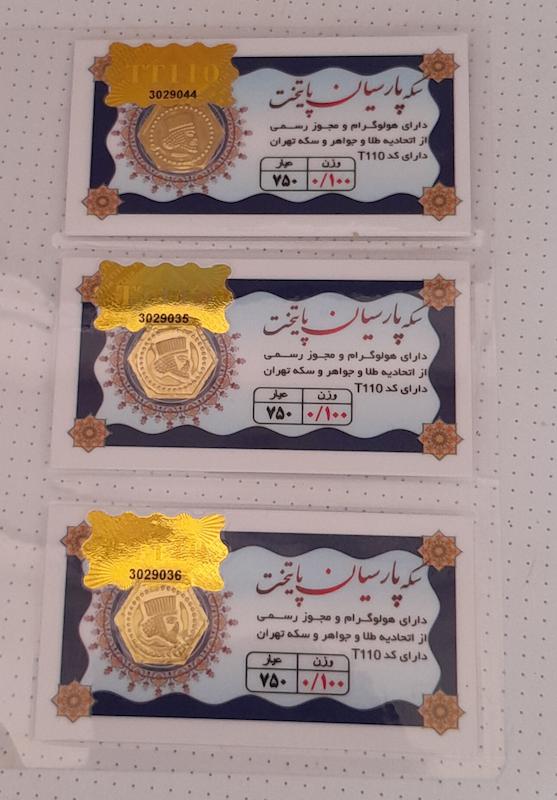 TT110
3029044
سکه پارسیان پایتخت
دارای هولوگرام و مجوز رسمی
از اتحادیه طلا و جواهر و سکه تهران
دارای کد T110
وزن عیار
۰/۱۰۰ ۷۵۰
3029035
سکه پارسیان پایتخت
دارای هولوگرام و مجوز رسمی
از اتحادیه طلا و جواهر و سکه تهران
دارای کد T110
وزن عیار
۰/۱۰۰ ۷۵۰
3029036
سکه پارسیان پایتخت
دارای هولوگرام و مجوز رسمی
از اتحادیه طلا و جواهر و سکه تهران
دارای کد T110
وزن عیار
۰/۱۰۰ ۷۵۰